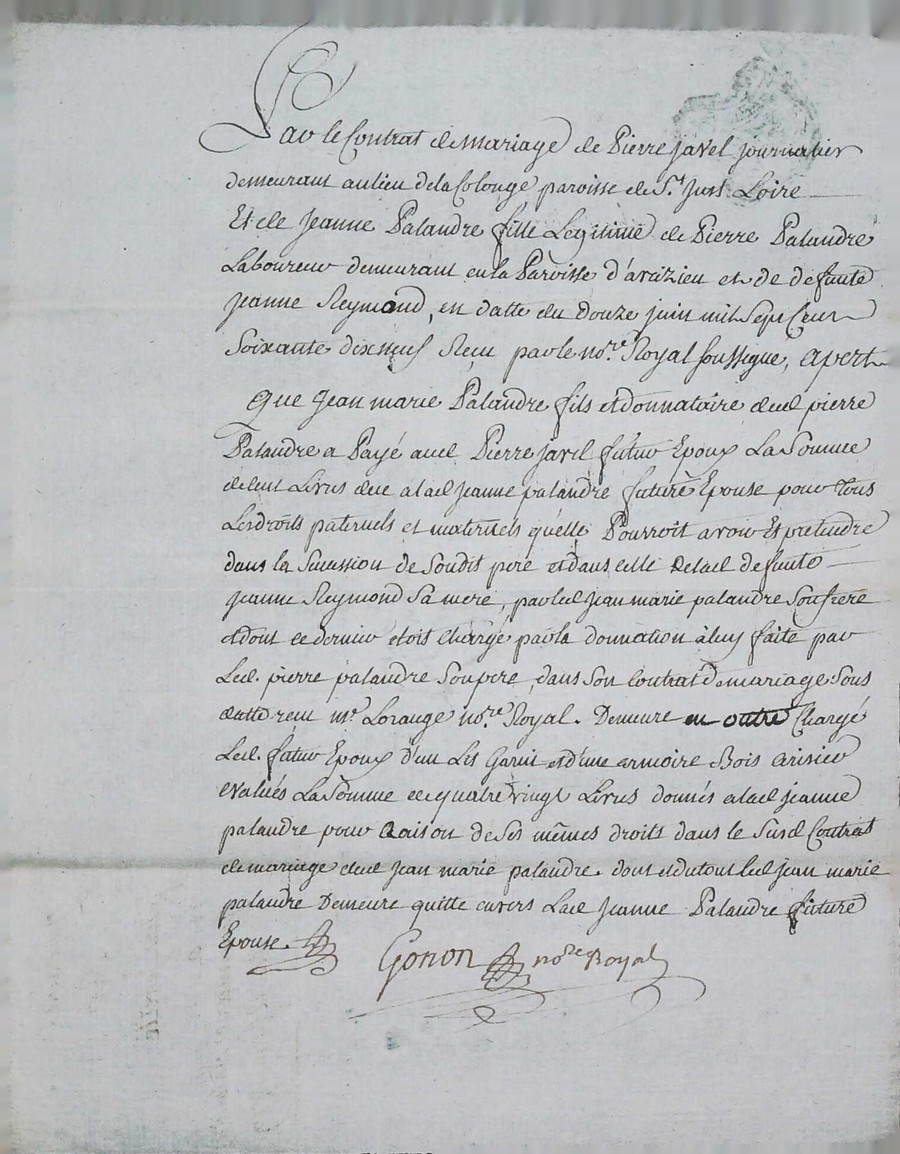 Par le Contrat de mariage de Pierre javel journalier
demeurant au lieu de la Colonge paroisse de St. Just Loire
Et de Jeanne Palandre fille Legitime de Pierre Palandre
Laboureur demeurant en la Paroisse d'avaizieu et de defunte
jeanne Reymond, en datte du Douze juin mil Sept Cent
Soixante dix neuf Recu par le nore. Royal soussigne, apert
Que Jean marie Palandre fils et donnataire dud pierre
Palandre a Payé aud Pierre javel futur Epoux La Somme
de Cent Livres due a lad jeanne palandre future Epouse pour Tous
Les droits paternels et maternels qu'elle Pourroit avoir Et pretendre
dans la Sucession de Soudit pere et dans celle de lad defunte
jeanne Reymond Sa mere, par led jean marie palandre Son frere
et dont ce dernier étoit Chargé par la donnation à luy faite par
Led. pierre palandre Son pere, dans Son Contrat de mariage Sous
datte reçu me Lorange nore. Royal. Demeure en outre Chargé
Led. futur Epoux d'un Lit Garni et d'une armoire Bois Cirisier
evalués La Somme de quatre vingt Livres donnés a lad jeanne
palandre pour Raison de Ses mêmes droits dans le Susd Contrat
de mariage dud jean marie palandre. dont et dutout led jean marie
palandre Demeure quitte envers Lad Jeanne Palandre future
Epouse.
Gonon nore Royal